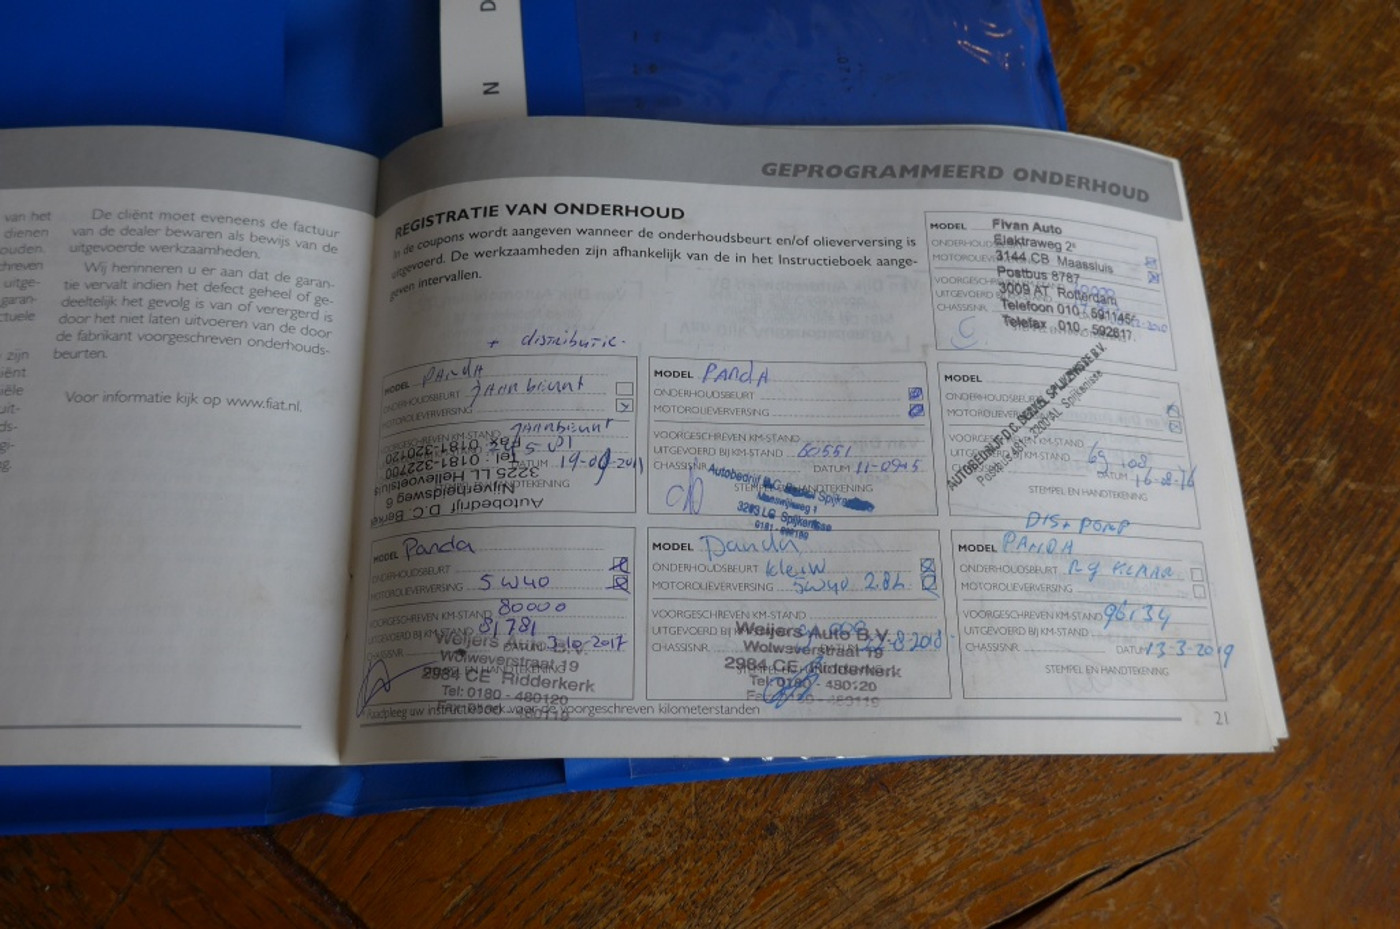 N D
van het
dienen
ouden.
chreven
uitge-
garan-
ctuele
zijn
iënt
iële
uit-
ds-
g-
g.
De cliënt moet eveneens de factuur
van de dealer bewaren als bewijs van de
uitgevoerde werkzaamheden.
Wij herinneren u er aan dat de garan-
tie vervalt indien het defect geheel of ge-
deeltelijk het gevolg is van of verergerd is
door het niet laten uitvoeren van de door
de fabrikant voorgeschreven onderhouds-
beurten.
Voor informatie kijk op www.fiat.nl.
GEPROGRAMMEERD ONDERHOUD
REGISTRATIE VAN ONDERHOUD
In de coupons wordt aangeven wanneer de onderhoudsbeurt en/of olieverversing is
uitgevoerd. De werkzaamheden zijn afhankelijk van de in het Instructieboek aange-
geven intervallen.
MODEL
ONDERHOUD
MOTOROL
VOORGESCHREVEN
UITGEVOERD B
CHASSISNR.
Fivan Auto
Elektraweg 2
3144 CB Maassluis
Postbus 8787
3009 AT Rotterdam
Telefoon 010 - 591145
Telefax 010 - 592817
+ distributie.
MODEL PANDA
ONDERHOUDSBEURT Jaarbeurt
MOTOROLIEVERVERSING
VOORGESCHREVEN KM-STAND Jaarbeurt
DATUM
STEMPEL EN HANDTEKENING
Autobedrijf D.C. Berkel
Nijverheidsweg 6
3225 LL Hellevoetsluis
Tel. 0181-322700
Fax 0181-320120
MODEL PANDA
ONDERHOUDSBEURT
MOTOROLIEVERVERSING
VOORGESCHREVEN KM-STAND
UITGEVOERD BIJ KM-STAND 60551
CHASSISNR. DATUM 11-0915
STEMPEL EN HANDTEKENING
Autobedrijf D.C. Spijkenisse
3203 LG Spijkenisse
MODEL
ONDERHOUDSBEURT
MOTOROLIEVERVERSING
VOORGESCHREVEN KM-STAND
DATUM 16-08-16
STEMPEL EN HANDTEKENING
AUTOBEDRIJF D.C. BERKEL SPIJKENISSE B.V.
Postbus 481 - 3200 AL Spijkenisse
MODEL Panda
ONDERHOUDSBEURT
MOTOROLIEVERVERSING 5W40
VOORGESCHREVEN KM-STAND 80000
UITGEVOERD BIJ KM-STAND 81781
CHASSISNR. DATUM 3-10-2017
STEMPEL EN HANDTEKENING
Weijers Auto B.V.
Wolweverstraat 19
2984 CE Ridderkerk
Tel: 0180 - 480120
Fax: 0180 - 480119
MODEL Panda
ONDERHOUDSBEURT klein
MOTOROLIEVERVERSING 5W40 2.8L
VOORGESCHREVEN KM-STAND
UITGEVOERD BIJ
CHASSISNR. -8-2018
Weijers Auto B.V.
Wolweverstraat 19
2984 CE Ridderkerk
Tel: 0180 - 480120
Fax: 0180 - 480119
DIS + POMP
MODEL PANDA
ONDERHOUDSBEURT
MOTOROLIEVERVERSING
VOORGESCHREVEN KM-STAND 96134
UITGEVOERD BIJ KM-STAND
CHASSISNR. DATUM 13-3-2019
STEMPEL EN HANDTEKENING
Raadpleeg uw instructieboek voor de voorgeschreven kilometerstanden
21